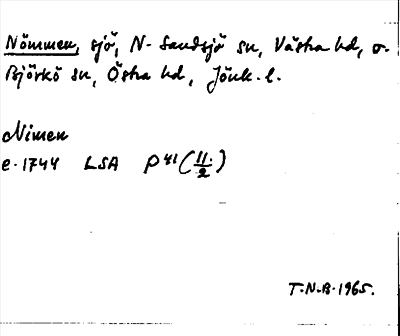 Nömmen, sjö, N. Sandsjö sn, Västra hd, o.
Björkö sn, Östra hd, Jönk. l.
Nimen
e. 1744 LSA P41 (11/2)
T.N.B. 1965.